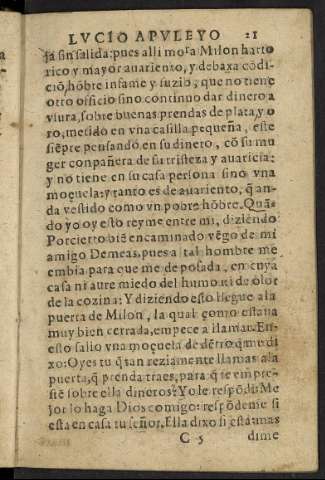 LVCIO APVLEYO 21
ja sin salida: pues alli mora Milon harto
rico y mayor auariento, y de baxa cõdi-
ciõ, hõbre infame y suzio, que no tiene
otro officio sino continuo dar dinero a
vsura, sobre buenas prendas de plata, y o
ro, metido en vna casilla pequeña, este
siẽpre pensando en su dinero, cõ su mu
ger conpañera de su tristeza y auaricia:
y no tiene en su casa persona sino vna
moçuela: y tanto es de auariento, q̃ an-
da vestido como vn pobre hõbre. Quã-
do yo oy esto reyme entre mi, diziẽdo
Porcierto biẽ encaminado vẽgo de mi
amigo Demeas, pues a tal hombre me
embia para que me de posada, en cuya
casa ni aure miedo del humo ni de olor
de la cozina: Y diziendo esto llegue a la
puerta de Milon, la qual como estaua
muy bien cerrada, empece a llamar. En-
esto salio vna moçuela de dẽtro q̃ me di
xo: Oyes tu q̃ tan reziamente llamas a la
puerta, q̃ prenda traes, para q̃ te empre-
stẽ sobre ella dineros? Yo le respõdi: Me
jor lo haga Dios comigo: respõdeme si
esta en casa tu señor. Ella dixo si esta: mas
C 5 dime